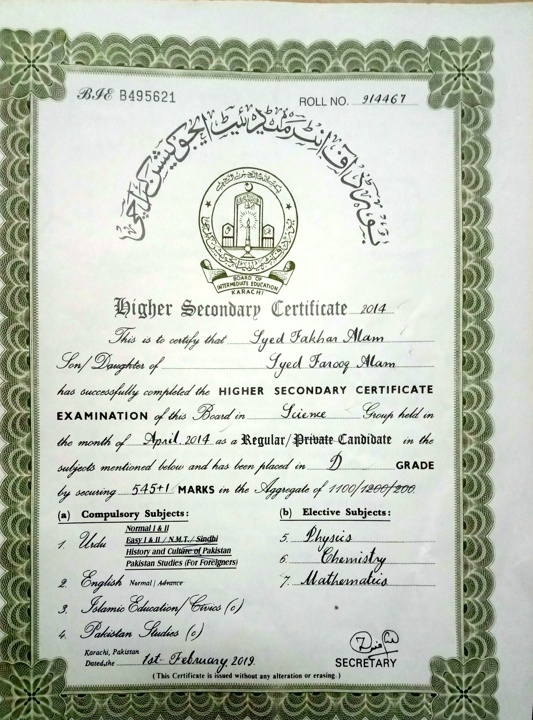 BIE B495621
ROLL NO. 914467
بورڈ آف انٹرمیڈیٹ ایجوکیشن کراچی
BOARD OF
INTERMEDIATE EDUCATION
KARACHI
Higher Secondary Certificate 2014
This is to certify that Syed Fakhar Alam
Son/Daughter of Syed Farooq Alam
has successfully completed the HIGHER SECONDARY CERTIFICATE
EXAMINATION of this Board in Science Group held in
the month of April 2014 as a Regular/Private Candidate in the
subjects mentioned below and has been placed in D GRADE
by securing 545+1 MARKS in the Aggregate of 1100/1200/200.
(a) Compulsory Subjects:
Normal I & II
1. Urdu Easy I & II / N.M.T. / Sindhi
History and Culture of Pakistan
Pakistan Studies (For Foreigners)
2. English Normal / Advance
3. Islamic Education/Civics (c)
4. Pakistan Studies (c)
(b) Elective Subjects:
5. Physics
6. Chemistry
7. Mathematics
Karachi, Pakistan
Dated, the 1st- February, 2019.
SECRETARY
(This Certificate is issued without any alteration or erasing.)